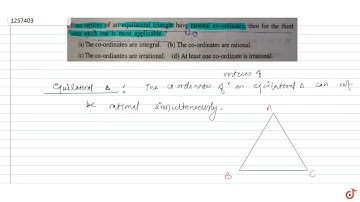 1257403
If two vertices of an equilateral triangle have rational co-ordinates, then for the third
vertex which one is most applicable?
(a) The co-ordinates are integral. (b) The co-ordinates are rational.
(c) The co-ordinates are irrational. (d) At least one co-ordinate is irrational.
vertices of
Equilateral Δ : The coordinates of an equilateral Δ can not
be rational simultaneously.
A
B
C